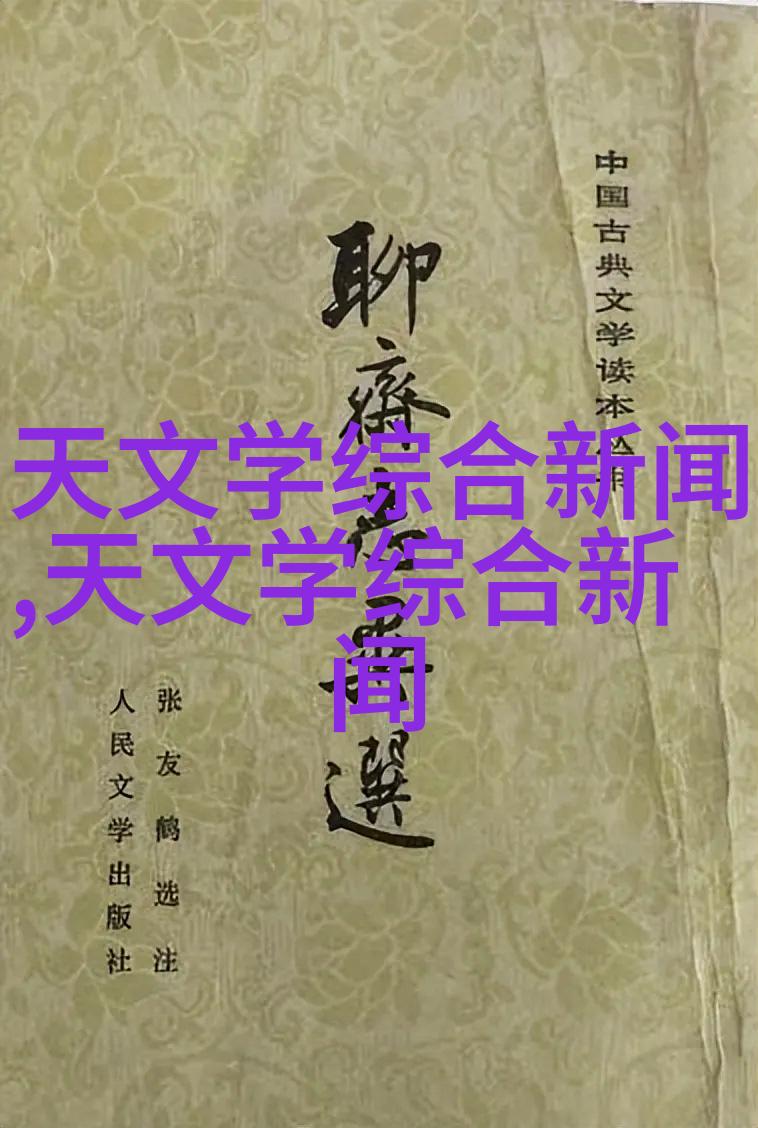 中国古典文学读本丛书
聊斋志异選
张友鹤选注
人民文学出版社
天文学综合新闻
,天文学综合新
闻